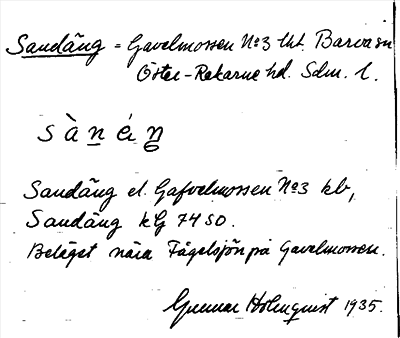 Sandäng = Gavelmossen No 3 tht. Barva sn
Öster-Rekarne hd. Sdm. l.
sàn én
Sandäng el. Gafvelmossen No 3 kb,
Sandäng kG 74 SO.
Beläget nära Fågelsjön på Gavelmossen.
Gunnar Holmquist 1935.